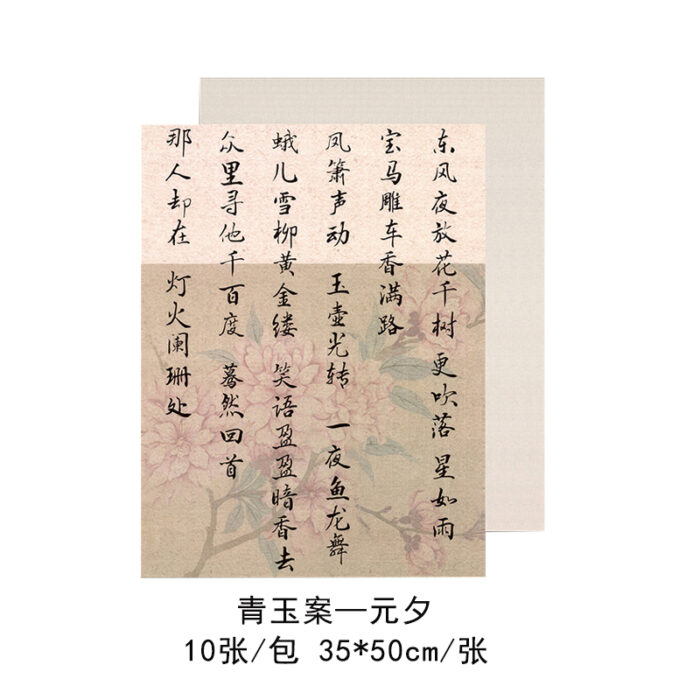 东风夜放花千树 更吹落 星如雨
宝马雕车香满路
凤箫声动 玉壶光转 一夜鱼龙舞
蛾儿雪柳黄金缕 笑语盈盈暗香去
众里寻他千百度 蓦然回首
那人却在 灯火阑珊处
青玉案—元夕
10张/包 35*50cm/张